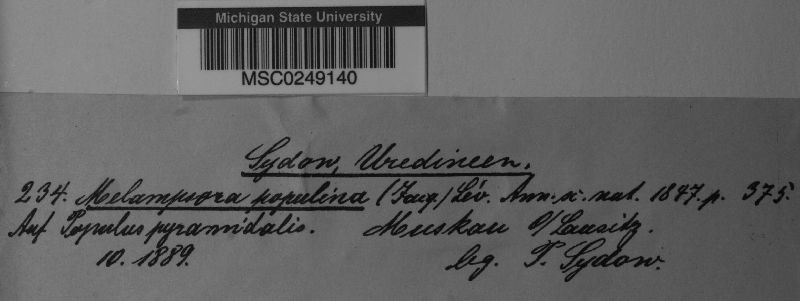 Michigan State University
MSC0249140
Sydow, Uredineen.
234. Melampsora populina (Jacq) Lév. Ann. sc. nat. 1847. p. 375.
Auf Populus pyramidalis. Muskau O/Lausitz.
10. 1889. lg. P. Sydow.